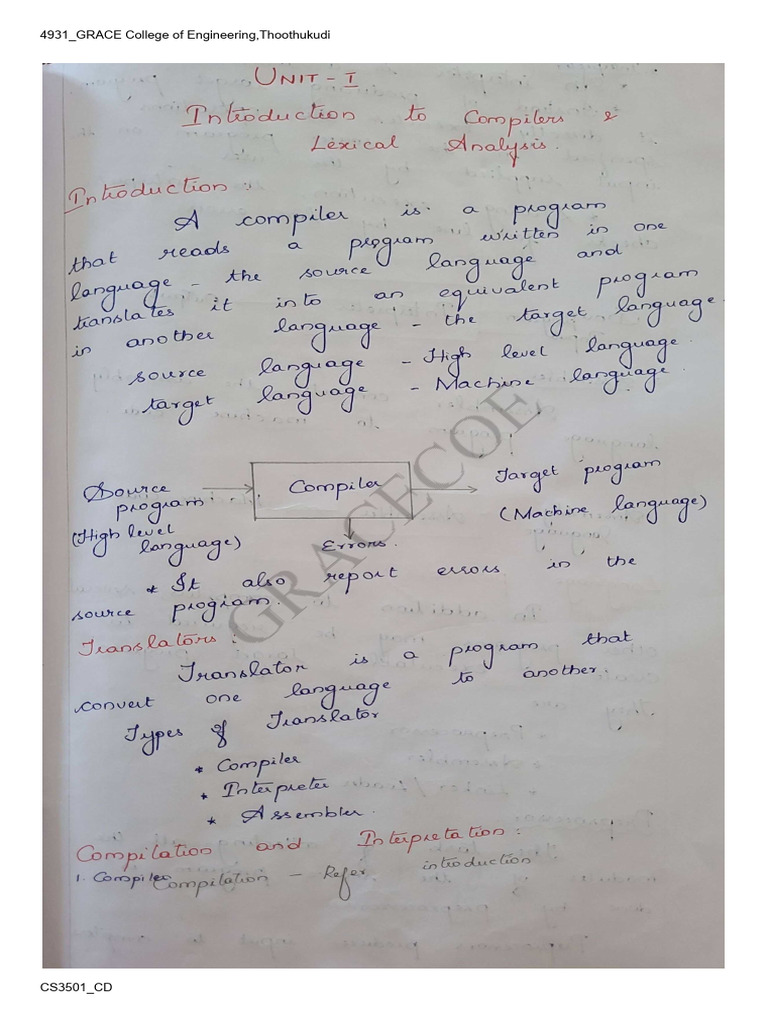 4931_GRACE College of Engineering,Thoothukudi
UNIT - I
Introduction to Compilers &
Lexical Analysis.
Introduction :
A compiler is a program
that reads a program written in one
language - the source language and
translates it into an equivalent program
in another language - the target language.
source language - High level language.
target language - Machine language.
Source program (High level language)
Compiler
Target program (Machine language)
Errors.
* It also report errors in the
source program.
Translators :
Translator is a program that
convert one language to another.
Types of Translator
* Compiler
* Interpreter
* Assembler.
Compilation and Interpretation :
1. Compiler Compilation - Refer introduction
GRACECOE
CS3501_CD